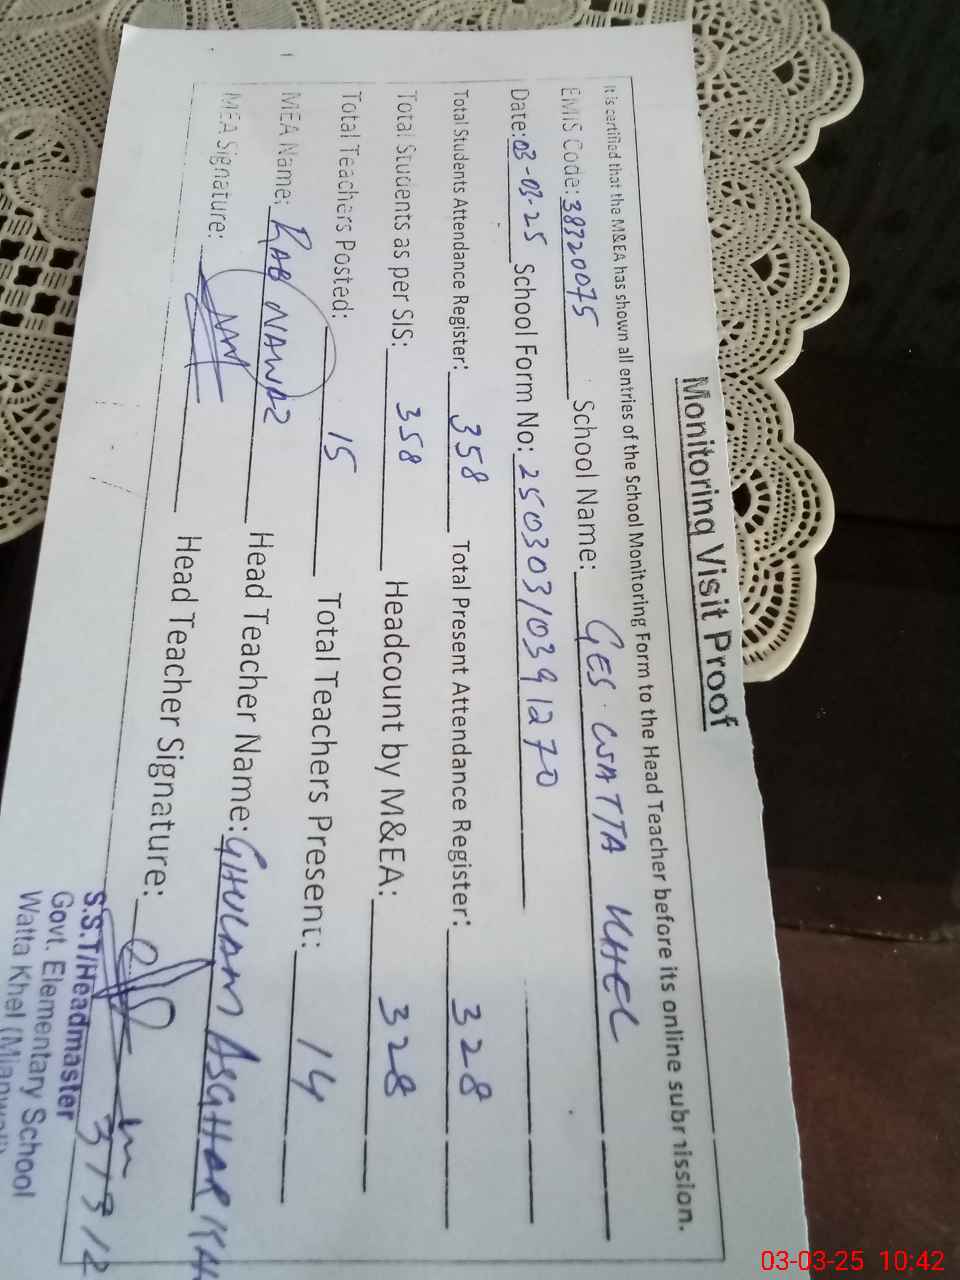 Monitoring Visit Proof
It is certified that the M&EA has shown all entries of the School Monitoring Form to the Head Teacher before its online submission.
EMIS Code: 38320075 School Name: GES. WATTA KHEL
Date: 03-03-25 School Form No: 250303/0391270
Total Students Attendance Register: 358 Total Present Attendance Register: 328
Total Students as per SIS: 358 Headcount by M&EA: 328
Total Teachers Posted: 15 Total Teachers Present: 14
MEA Name: RAB NAWAZ Head Teacher Name: GHULAM ASGHAR KH
MEA Signature: Head Teacher Signature:
3/3/2
S.S.T/Headmaster
Govt. Elementary School
Watta Khel (Mianwali)
03-03-25 10:42